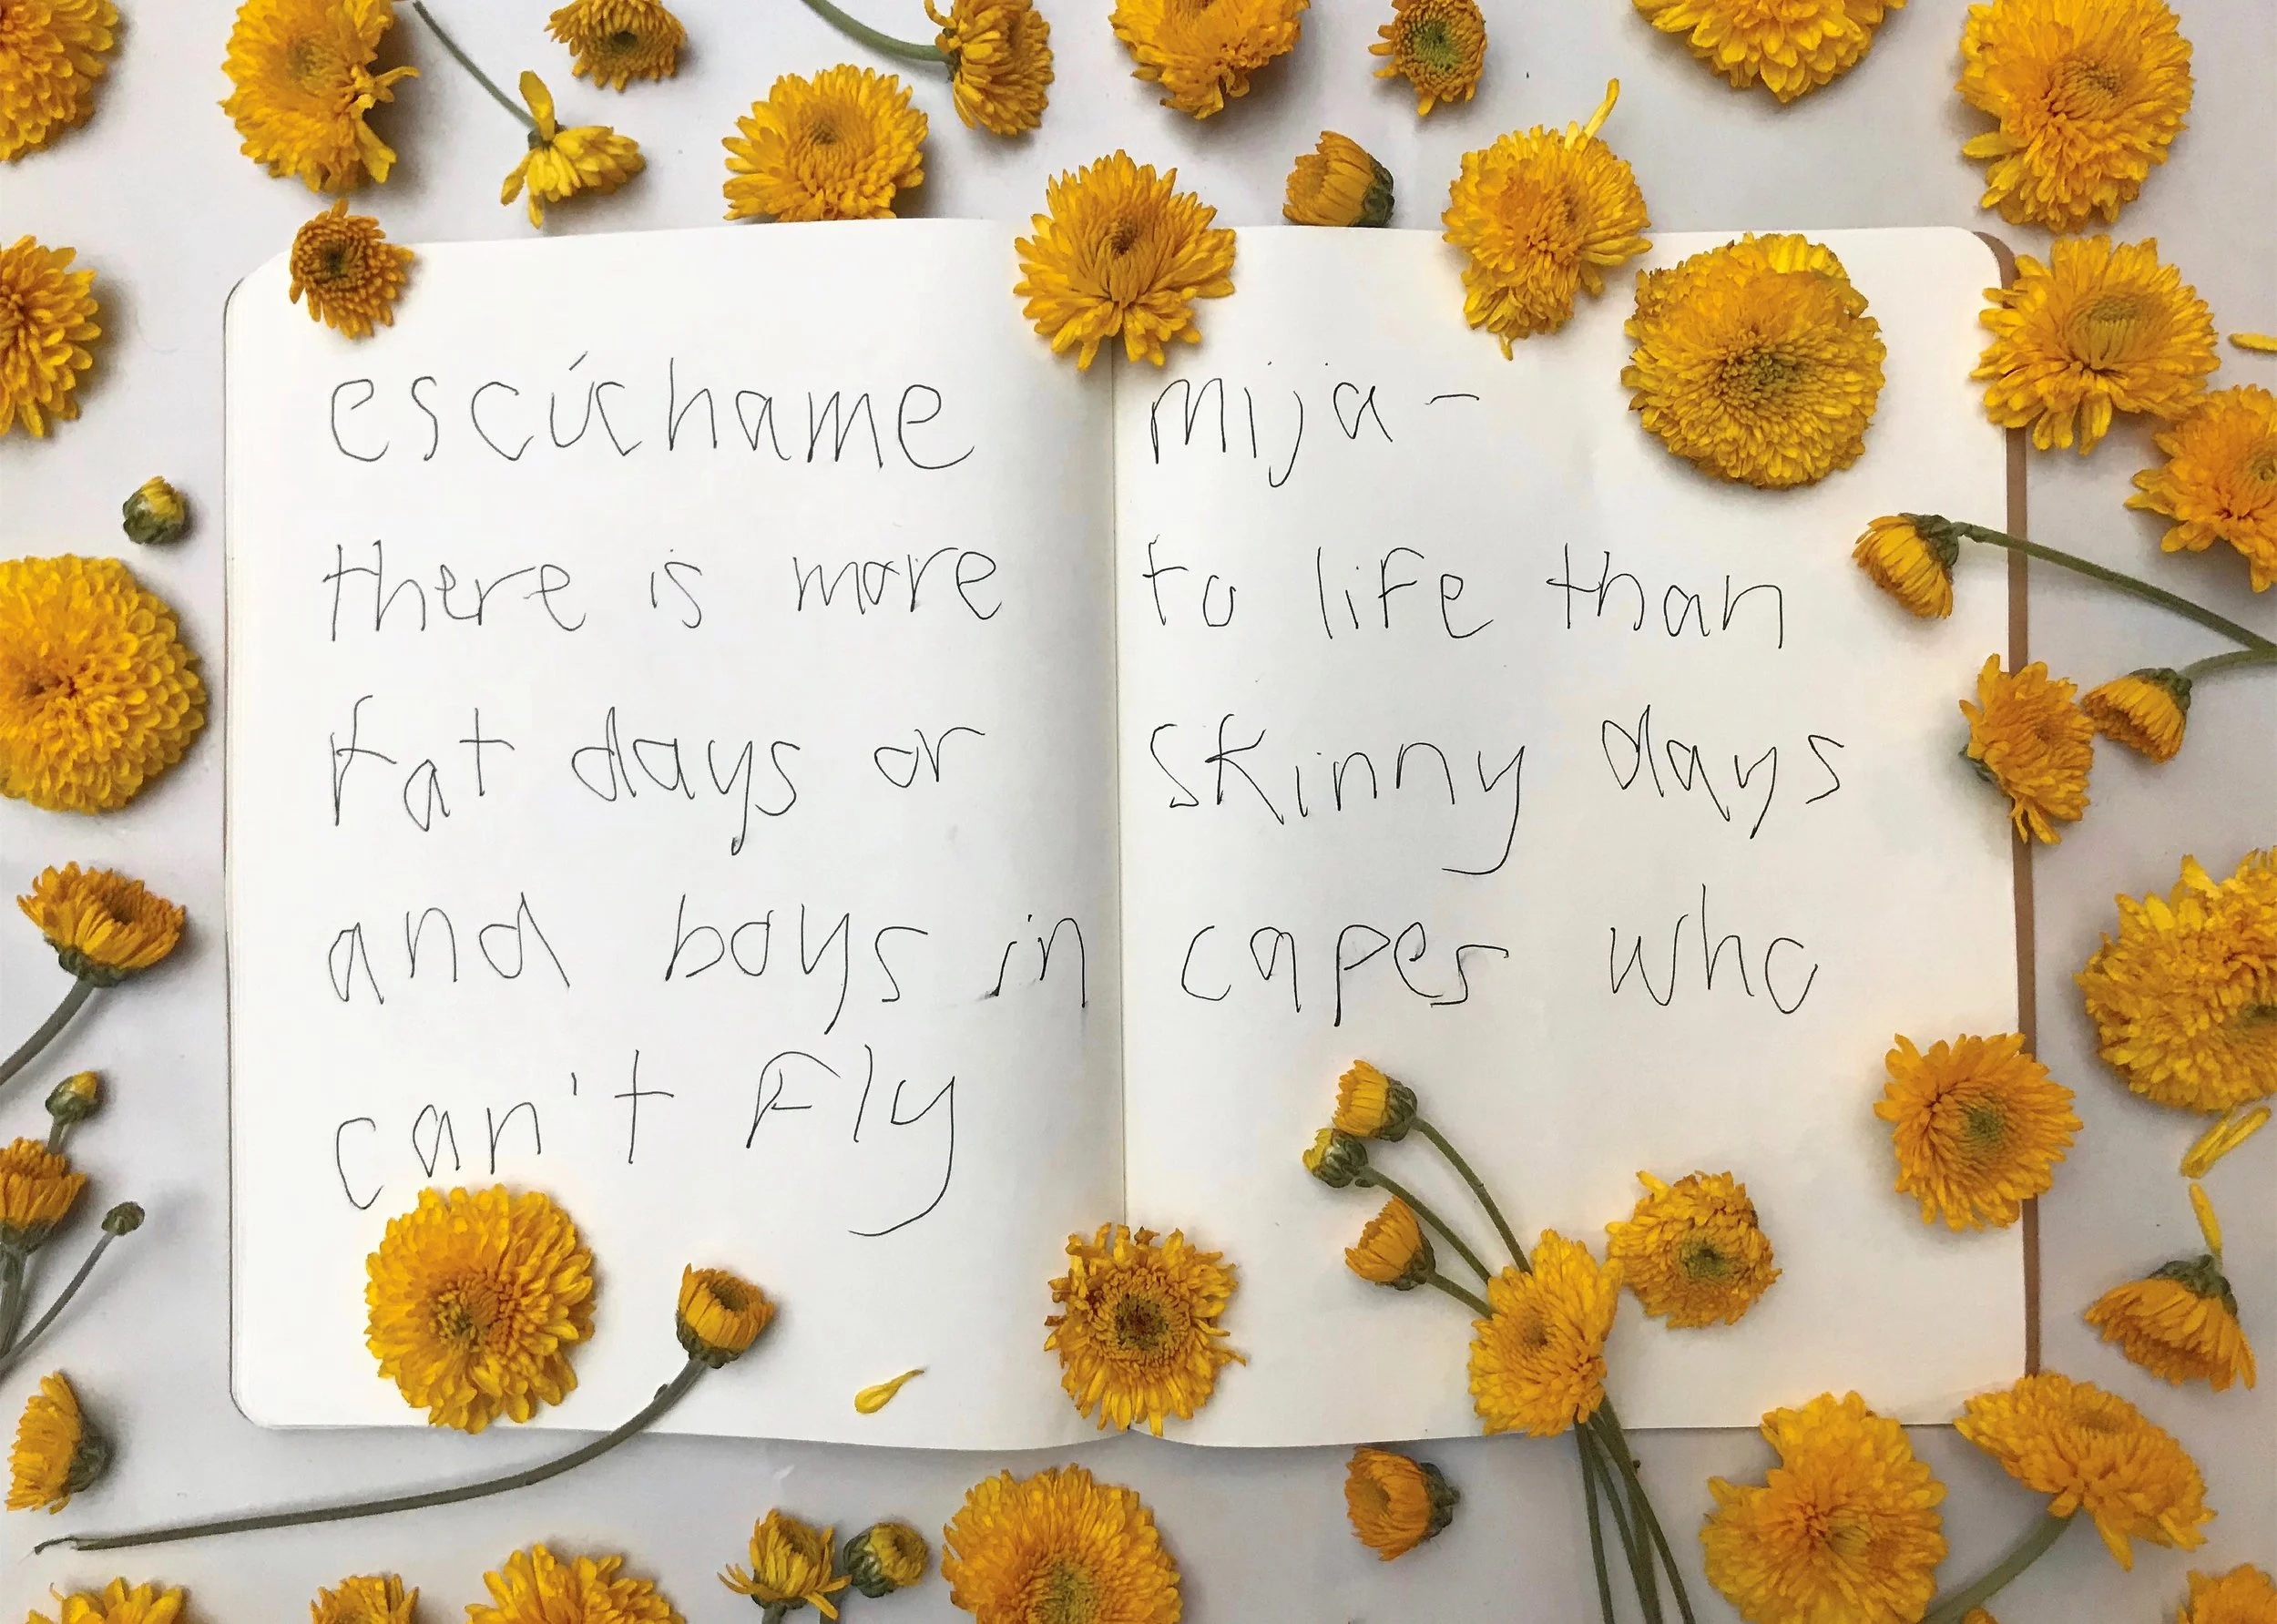 escúchame mija-
there is more to life than
fat days or skinny days
and boys in capes who
can't fly